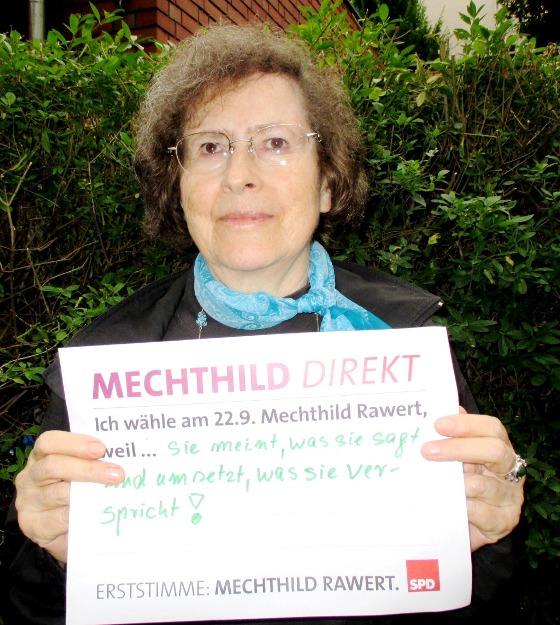 MECHTHILD DIREKT
Ich wähle am 22.9. Mechthild Rawert,
weil ... sie meint, was sie sagt
und umsetzt, was sie ver-
spricht!
ERSTSTIMME: MECHTHILD RAWERT. SPD